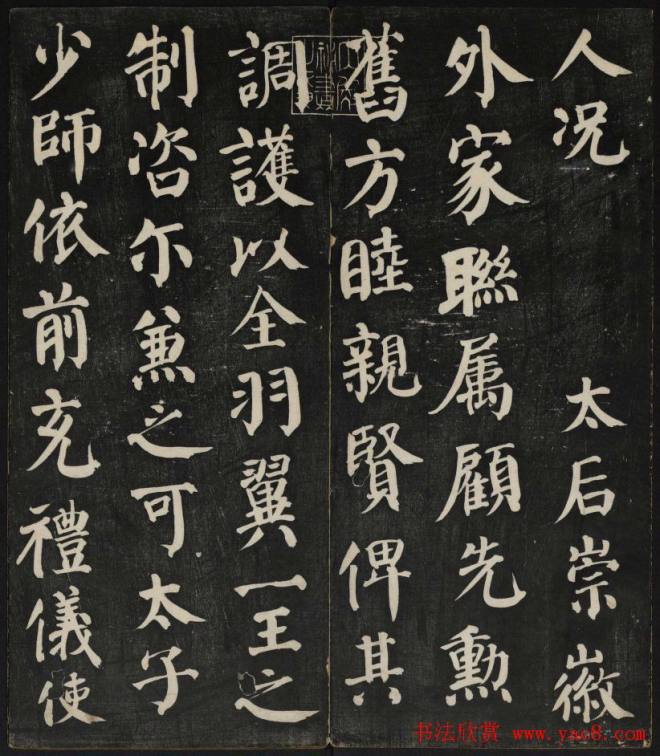 人况 太后崇徽
外家聯属顧先勳
舊方睦親賢俾其
調護以全羽翼一王之
制咨尓兼之可太子
少師依前充禮儀使
书法欣赏 www.yac8.com